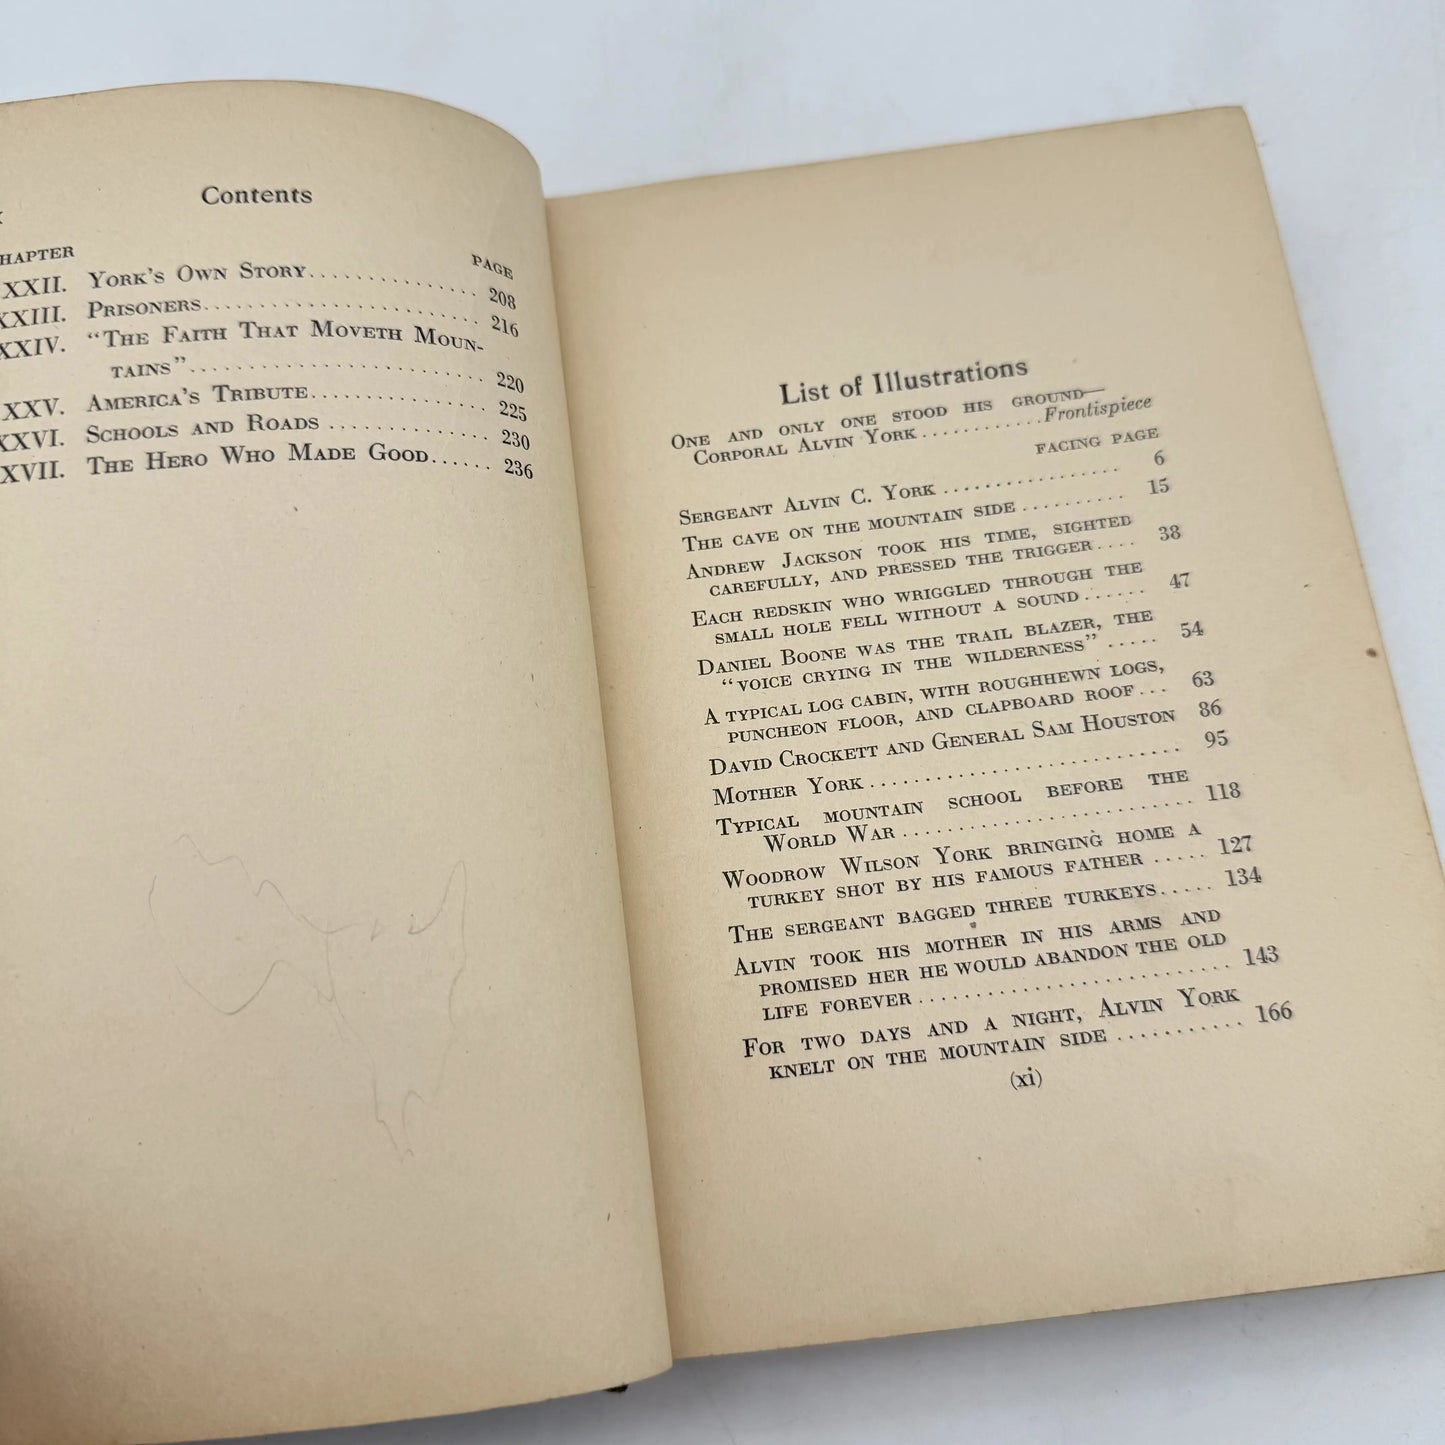 Contents
HAPTER PAGE
XXII. York's Own Story............... 208
XXIII. Prisoners....................... 216
XXIV. "The Faith That Moveth Moun-
tains".......................... 220
XXV. America's Tribute............... 225
XXVI. Schools and Roads .............. 230
XVII. The Hero Who Made Good...... 236
List of Illustrations
One and only one stood his ground—
Corporal Alvin York............Frontispiece
FACING PAGE
Sergeant Alvin C. York ................. 6
The cave on the mountain side .......... 15
Andrew Jackson took his time, sighted
carefully, and pressed the trigger.... 38
Each redskin who wriggled through the
small hole fell without a sound...... 47
Daniel Boone was the trail blazer, the
"voice crying in the wilderness" ..... 54
A typical log cabin, with roughhewn logs,
puncheon floor, and clapboard roof... 63
David Crockett and General Sam Houston 86
Mother York............................ 95
Typical mountain school before the
World War.......................... 118
Woodrow Wilson York bringing home a
turkey shot by his famous father ..... 127
The sergeant bagged three turkeys..... 134
Alvin took his mother in his arms and
promised her he would abandon the old
life forever........................... 143
For two days and a night, Alvin York
knelt on the mountain side ........... 166
(xi)